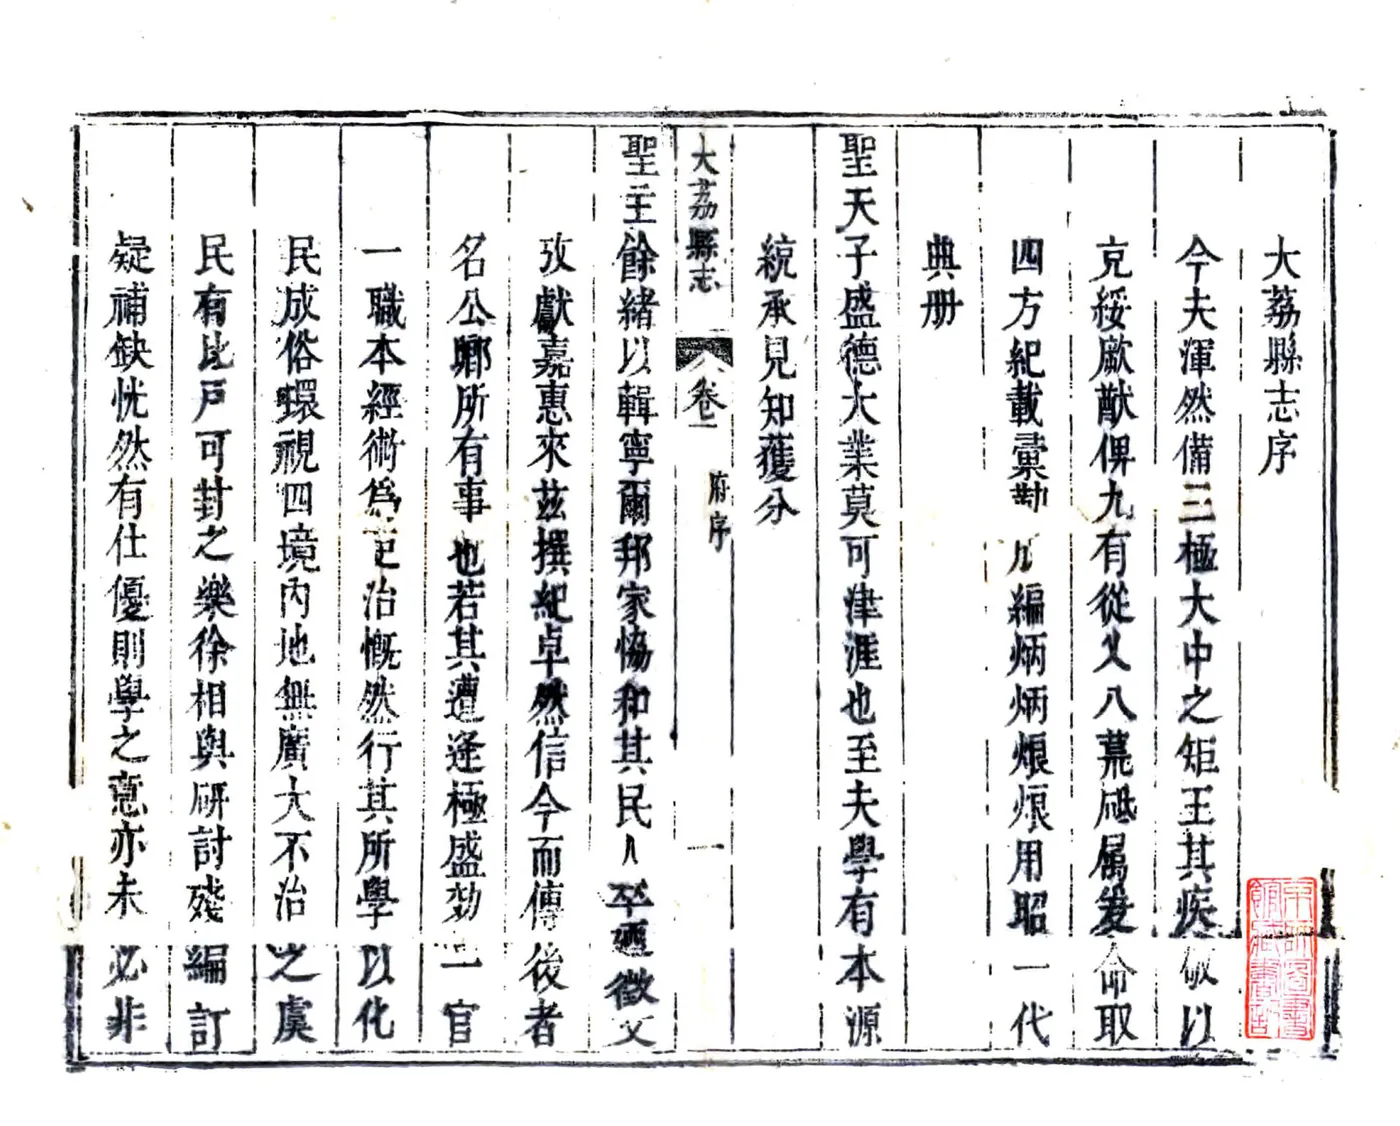 大荔縣志序
今夫渾然備三極大中之矩王其疾敬以
克綏厥猷俾九有從乂八荒砥属爰命取
四方紀載彙勒編炳炳烺烺用昭一代
典册
聖天子盛德大業莫可津涯也至夫學有本源
統承見知獲分
大荔縣志
卷一
府序
一
聖主餘緒以輯寧爾邦家恊和其民人卒迺徵文
攷獻嘉惠來兹撰紀卓然信今而傳後者
名公鄉所有事也若其遭逢極盛効一官
一職本經術為吏治慨然行其所學以化
民成俗環視四境内地無廣大不治之虞
民有比戸可封之樂徐相與研討殘編訂
疑補缺恍然有仕優則學之意亦未必非
京師圖書館藏書記